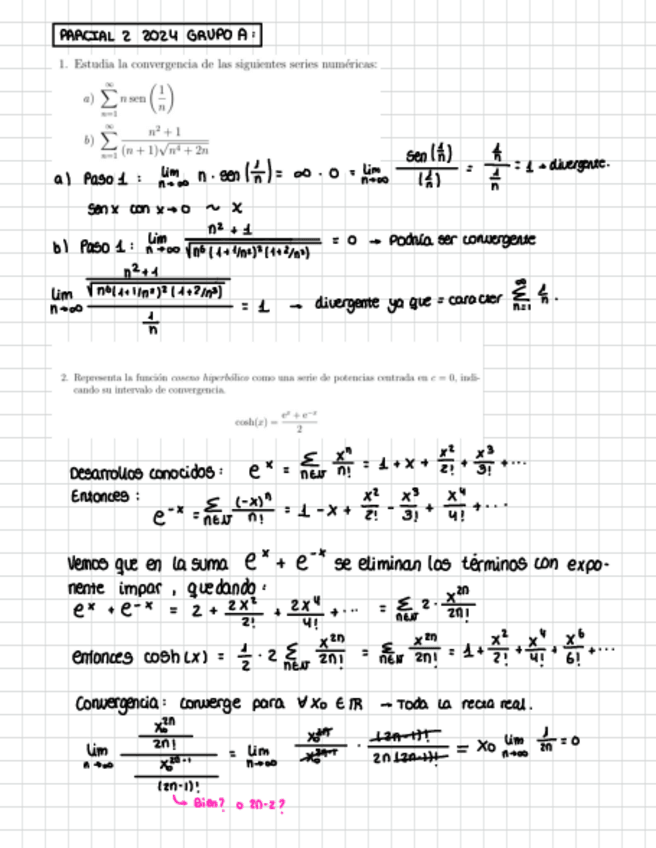 PARCIAL 2 2024 GRUPO A:
1. Estudia la convergencia de las siguientes series numéricas:
a) ∑_{n=1}^{∞} n sen (1/n)
b) ∑_{n=1}^{∞} (n² + 1) / ((n + 1)√(n⁴ + 2n))
a) Paso 1: lim_{n→∞} n · sen (1/n) = ∞ · 0 = lim_{n→∞} sen (1/n) / (1/n) = (1/n) / (1/n) = 1 → divergente.
sen x con x→0 ~ x
b) Paso 1: lim_{n→∞} (n² + 1) / √(n⁶ (1+1/n²)² (1+2/n³)) = 0 → Podría ser convergente
lim_{n→∞} ((n²+1) / √(n⁶(1+1/n²)² (1+2/n³))) / (1/n) = 1 → divergente ya que = caracter ∑_{n=1}^{∞} 1/n.
2. Representa la función coseno hiperbólico como una serie de potencias centrada en c = 0, indi-
cando su intervalo de convergencia.
cosh(x) = (eˣ + e⁻ˣ) / 2
Desarrollos conocidos: eˣ = ∑_{n∈ℕ} xⁿ/n! = 1 + x + x²/2! + x³/3! + ...
Entonces:
e⁻ˣ = ∑_{n∈ℕ} (-x)ⁿ/n! = 1 - x + x²/2! - x³/3! + x⁴/4! + ...
Vemos que en la suma eˣ + e⁻ˣ se eliminan los términos con expo-
nente impar, quedando:
eˣ + e⁻ˣ = 2 + 2x²/2! + 2x⁴/4! + ... = ∑_{n∈ℕ} 2 · x²ⁿ/2n!
entonces cosh(x) = 1/2 · 2 ∑_{n∈ℕ} x²ⁿ/2n! = ∑_{n∈ℕ} x²ⁿ/2n! = 1 + x²/2! + x⁴/4! + x⁶/6! + ...
Convergencia: converge para ∀ x₀ ∈ ℝ → Toda la recta real.
lim_{n→∞} (x₀²ⁿ/2n!) / (x₀²ⁿ⁻¹/(2n-1)!) = lim_{n→∞} x₀²ⁿ/x₀²ⁿ⁻¹ · (2n-1)!/(2n(2n-1)!) = x₀ lim_{n→∞} 1/2n = 0
↳ Bien? o 2n-2?